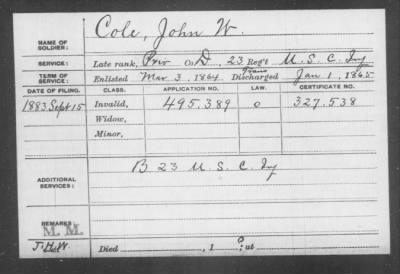 NAME OF SOLDIER: Cole, John W.
SERVICE: Late rank, Priv Co. D, 23 Reg't U. S. C. Inf
TERM OF SERVICE: Enlisted Mar 3, 1864 Trans Discharged Jan 1, 1865
DATE OF FILING. CLASS. APPLICATION NO. LAW. CERTIFICATE NO.
1883 Sept 15 Invalid, 495.389 o 327.538
Widow,
Minor,
ADDITIONAL SERVICES: B 23 U. S. C. Inf
REMARKS:
M. M.
J.H.W. Died , 1 , at